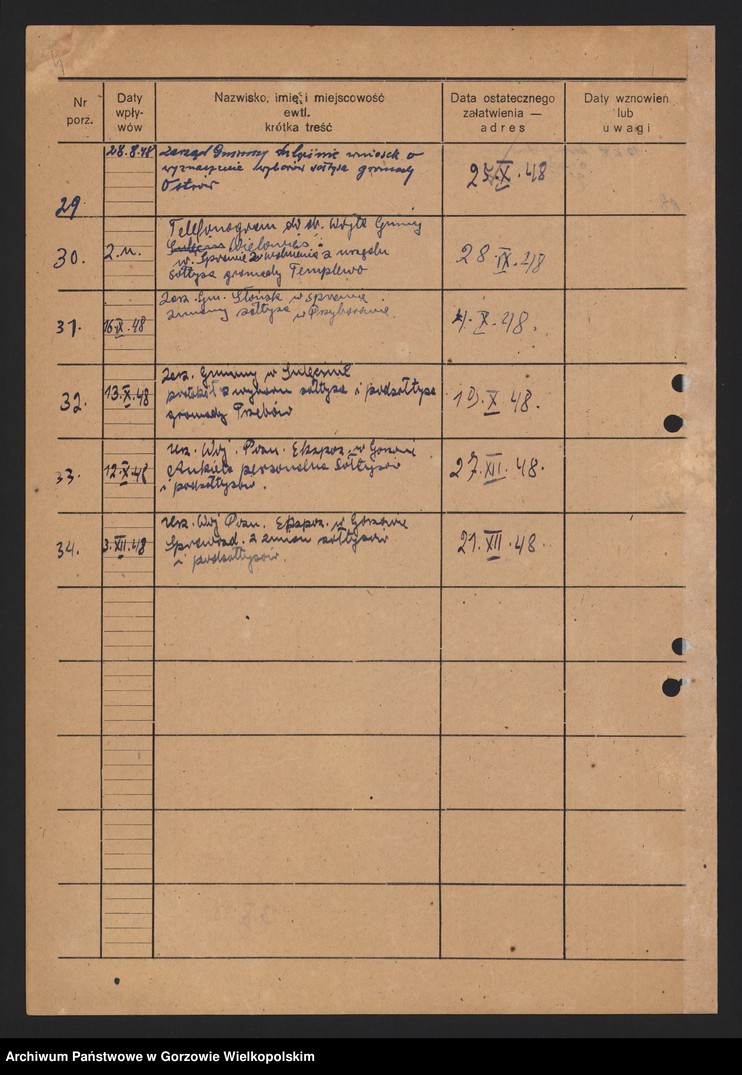 Nr porz.
Daty wpły-
wów
Nazwisko, imię i miejscowość
ewtl.
krótka treść
Data ostatecznego
załatwienia —
adres
Daty wznowień
lub
uwagi
29
28.8.48
Zarząd Gminny wniosek o
wyznaczenie wyborów sołtysa gromady
Ostrów
25.X.48
30.
Telefonogram do ob. Wójta Gminy
Wielowieś
2.
w sprawie zwolnienia z urzędu
sołtysa gromady Templewo
28.IX.48
31.
16.IX.48
Zarz. Gm. Słońsk w sprawie
zmiany sołtysa w
4.X.48.
32.
13.X.48
Zarz. Gminny w Sulęcinie
protokół o wyboru sołtysa i podsołtysa
gromady Trzebów
19.X.48.
33.
12.X.48
Urz. Woj. Pozn. Ekspoz. w Gorzowie
Ankieta personalna sołtysów
i podsołtysów.
27.XII.48.
34.
3.XII.48
Urz. Woj Pozn. Ekspoz. w Gorzowie
Sprawozd. z zmian sołtysów
i podsołtysów.
21.XII.48.
Archiwum Państwowe w Gorzowie Wielkopolskim